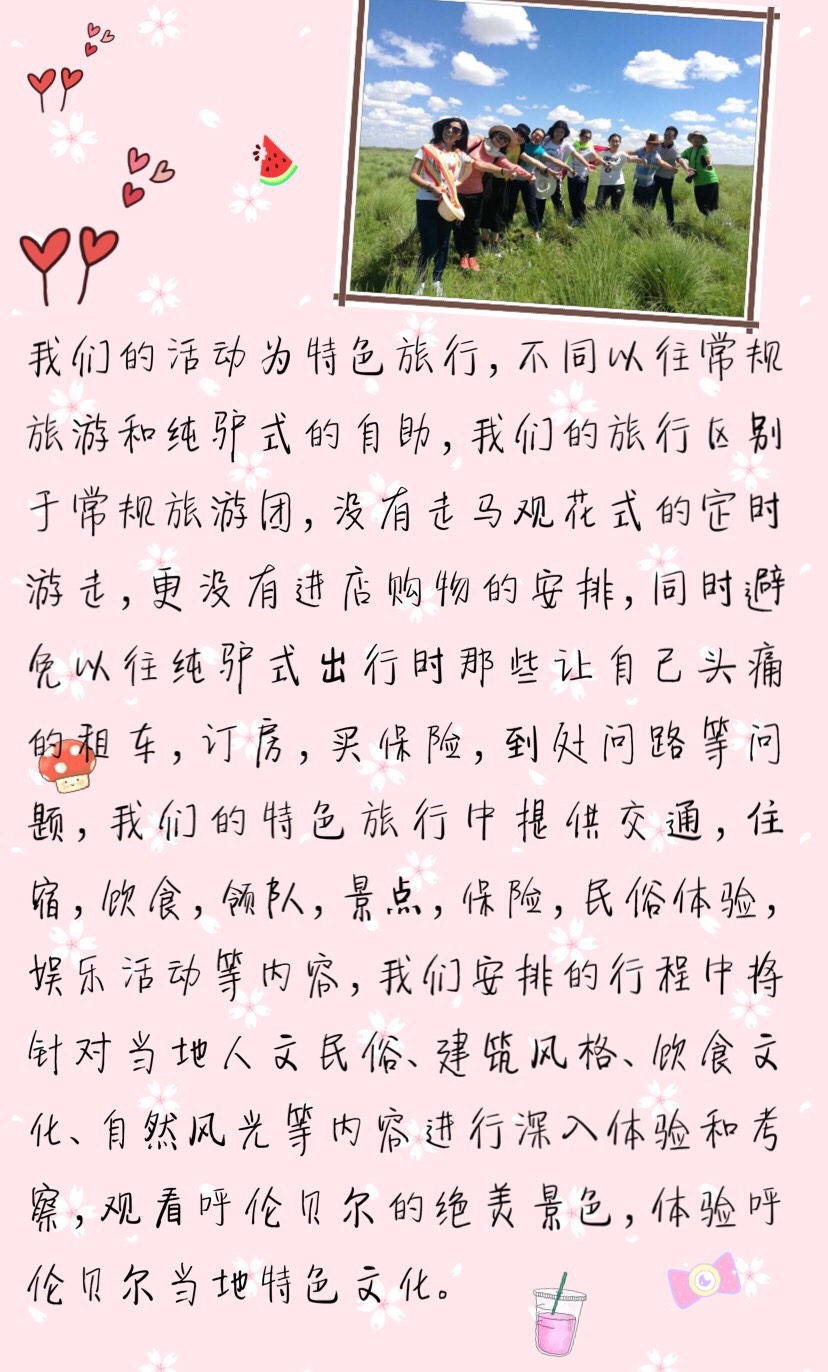 我们的活动为特色旅行,不同以往常规
旅游和纯驴式的自助,我们的旅行区别
于常规旅游团,没有走马观花式的定时
游走,更没有进店购物的安排,同时避
免以往纯驴式出行时那些让自己头痛
的租车,订房,买保险,到处问路等问
题,我们的特色旅行中提供交通,住
宿,饮食,领队,景点,保险,民俗体验,
娱乐活动等内容,我们安排的行程中将
针对当地人文民俗、建筑风格、饮食文
化、自然风光等内容进行深入体验和考
察,观看呼伦贝尔的绝美景色,体验呼
伦贝尔当地特色文化。